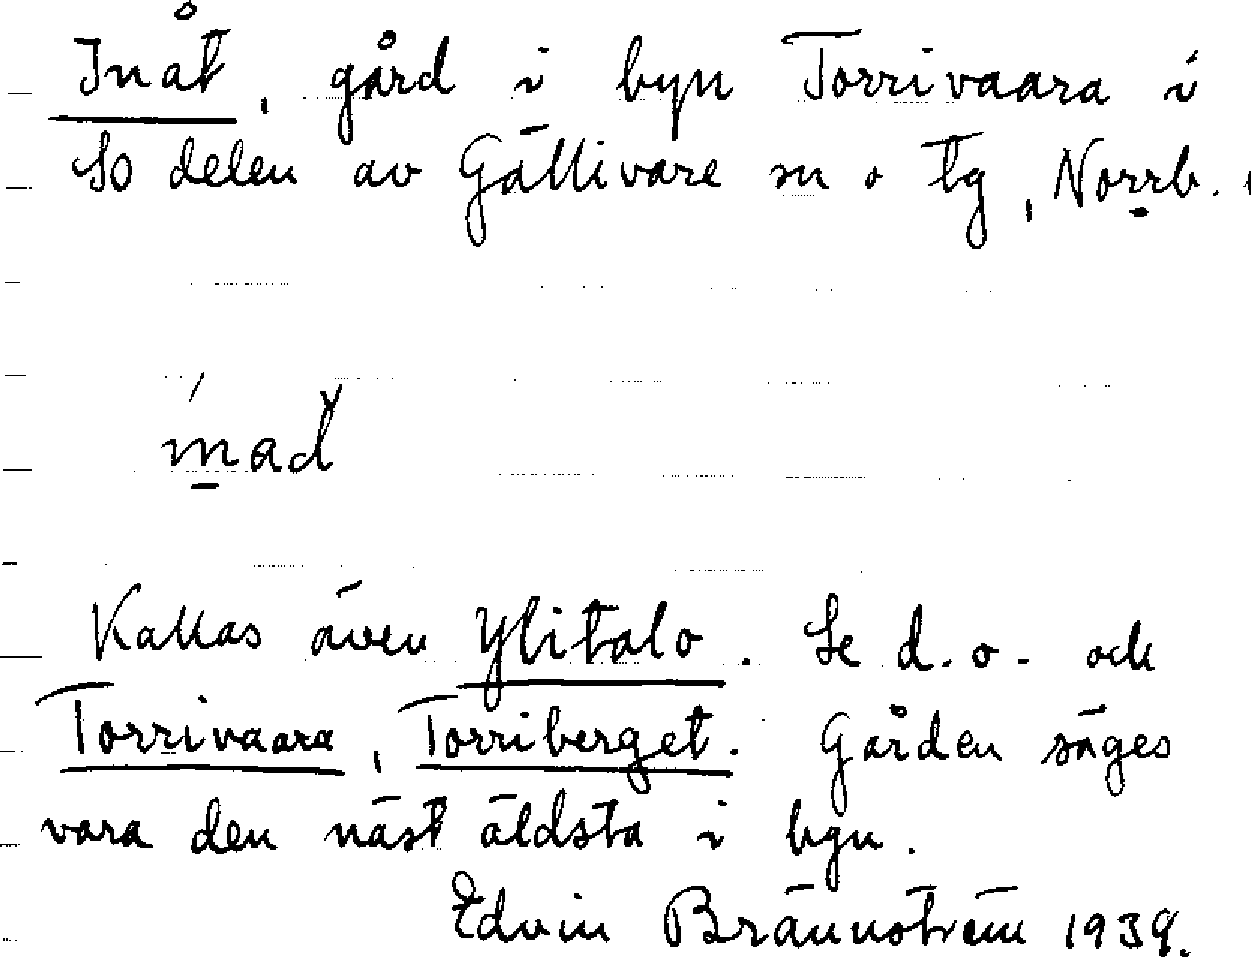 Inåt, gård i byn Torrivaara i
So delen av Gällivare sn o tg, Norrb.
Kallas även Ylitalo. Se d. o. och
Torrivaara, Torriberget. Gården säges
vara den näst äldsta i byn.
Edvin Brännström 1939.